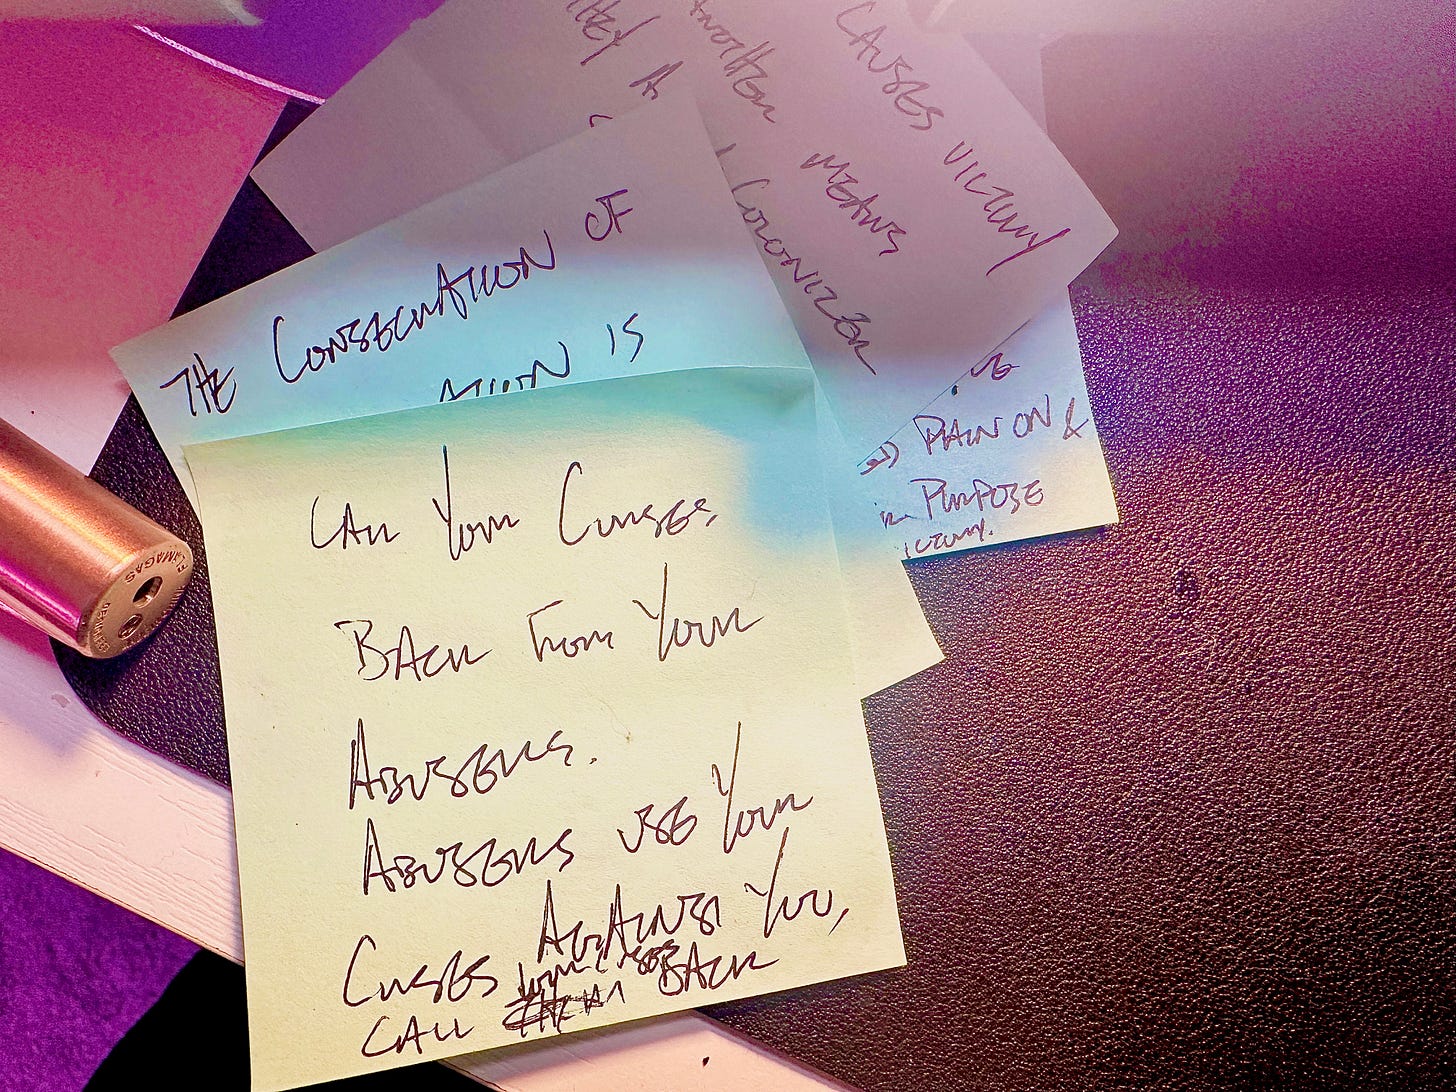 THEY A
ANOTHER MEANS
COLONIZER
CAUSES
THE CONSECRATION OF
ATION IS
PAIN ON &
PURPOSE
CALL YOUR CURSES
BACK FROM YOUR
ABUSERS.
ABUSERS USE YOUR
CURSES AGAINST YOU,
CALL YOUR CURSES BACK